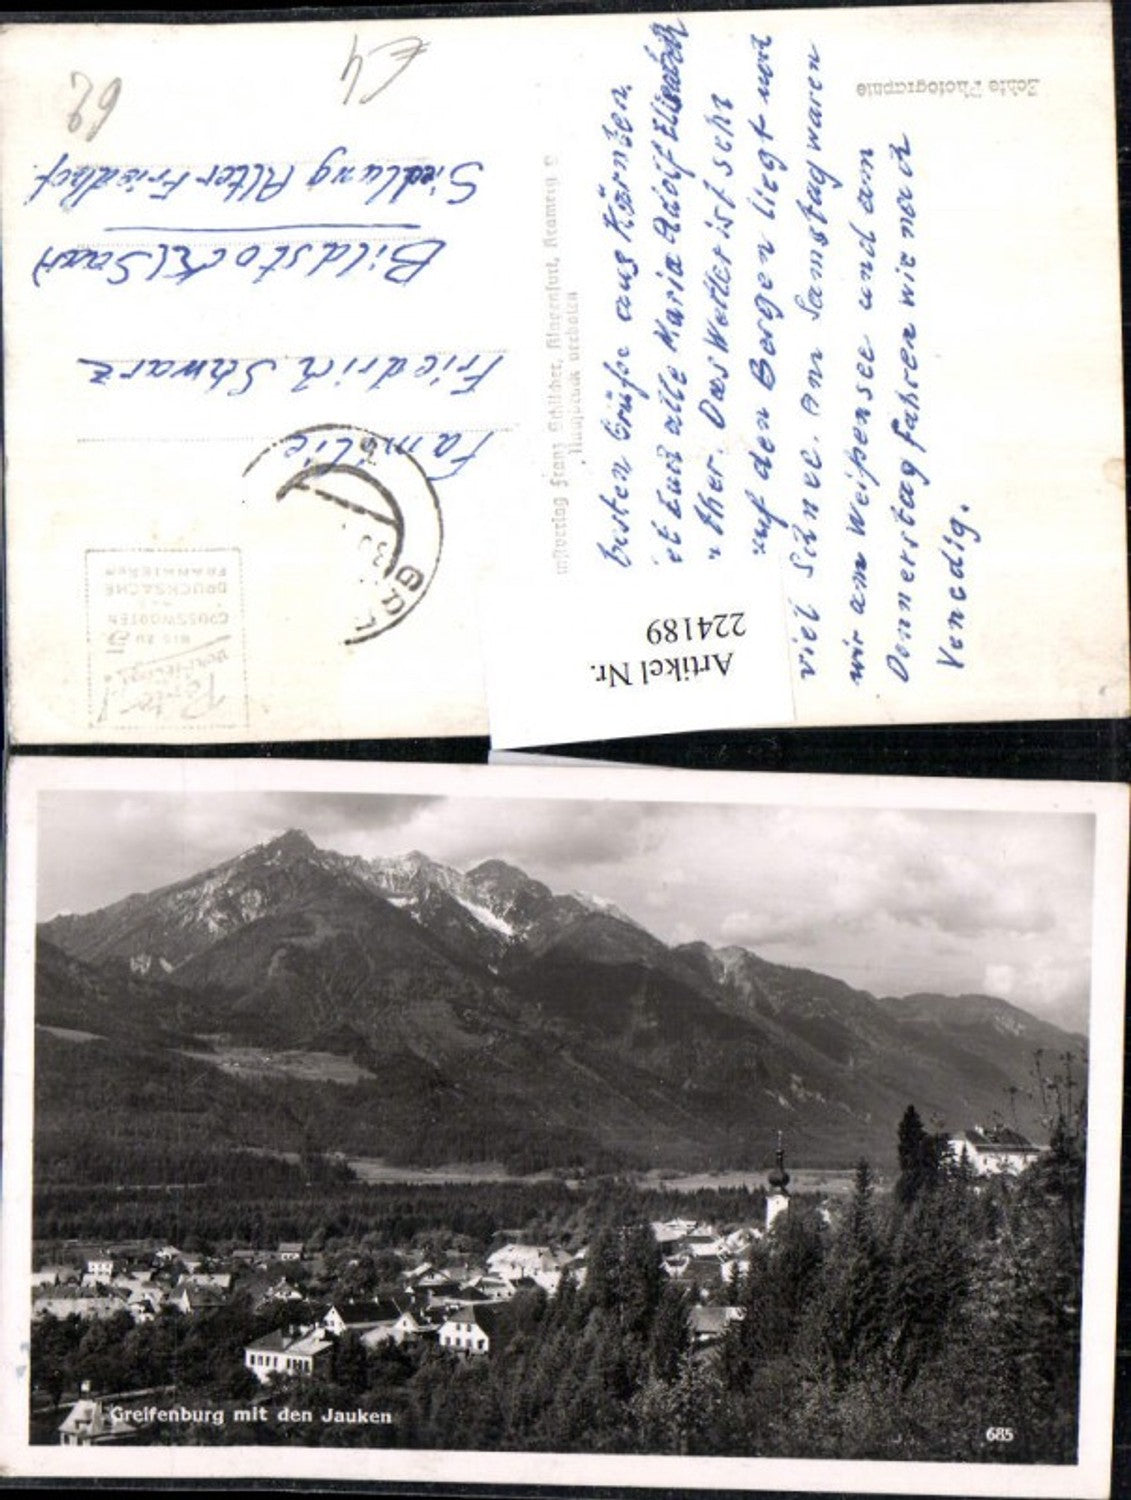 Echte Photographie
besten Grüße aus Kärnten
Euch alle Maria Adolf Elisabeth
Das Wetter ist sehr
auf den Bergen liegt noch
viel Schnee. Am Samstag waren
wir am Weißensee und am
Donnerstag fahren wir nach
Venedig.
Franz Schilcher, Klagenfurt,
Nachdruck verboten
Artikel Nr.
224189
BIS ZU 5
GRUSSWORTEN
ALS
DRUCKSACHE
FRANKIEREN
Familie
Friedrich Schwarz
Bildstock (Saar)
Siedlung Alter Friedhof
62
€4
Greifenburg mit den Jauken
685